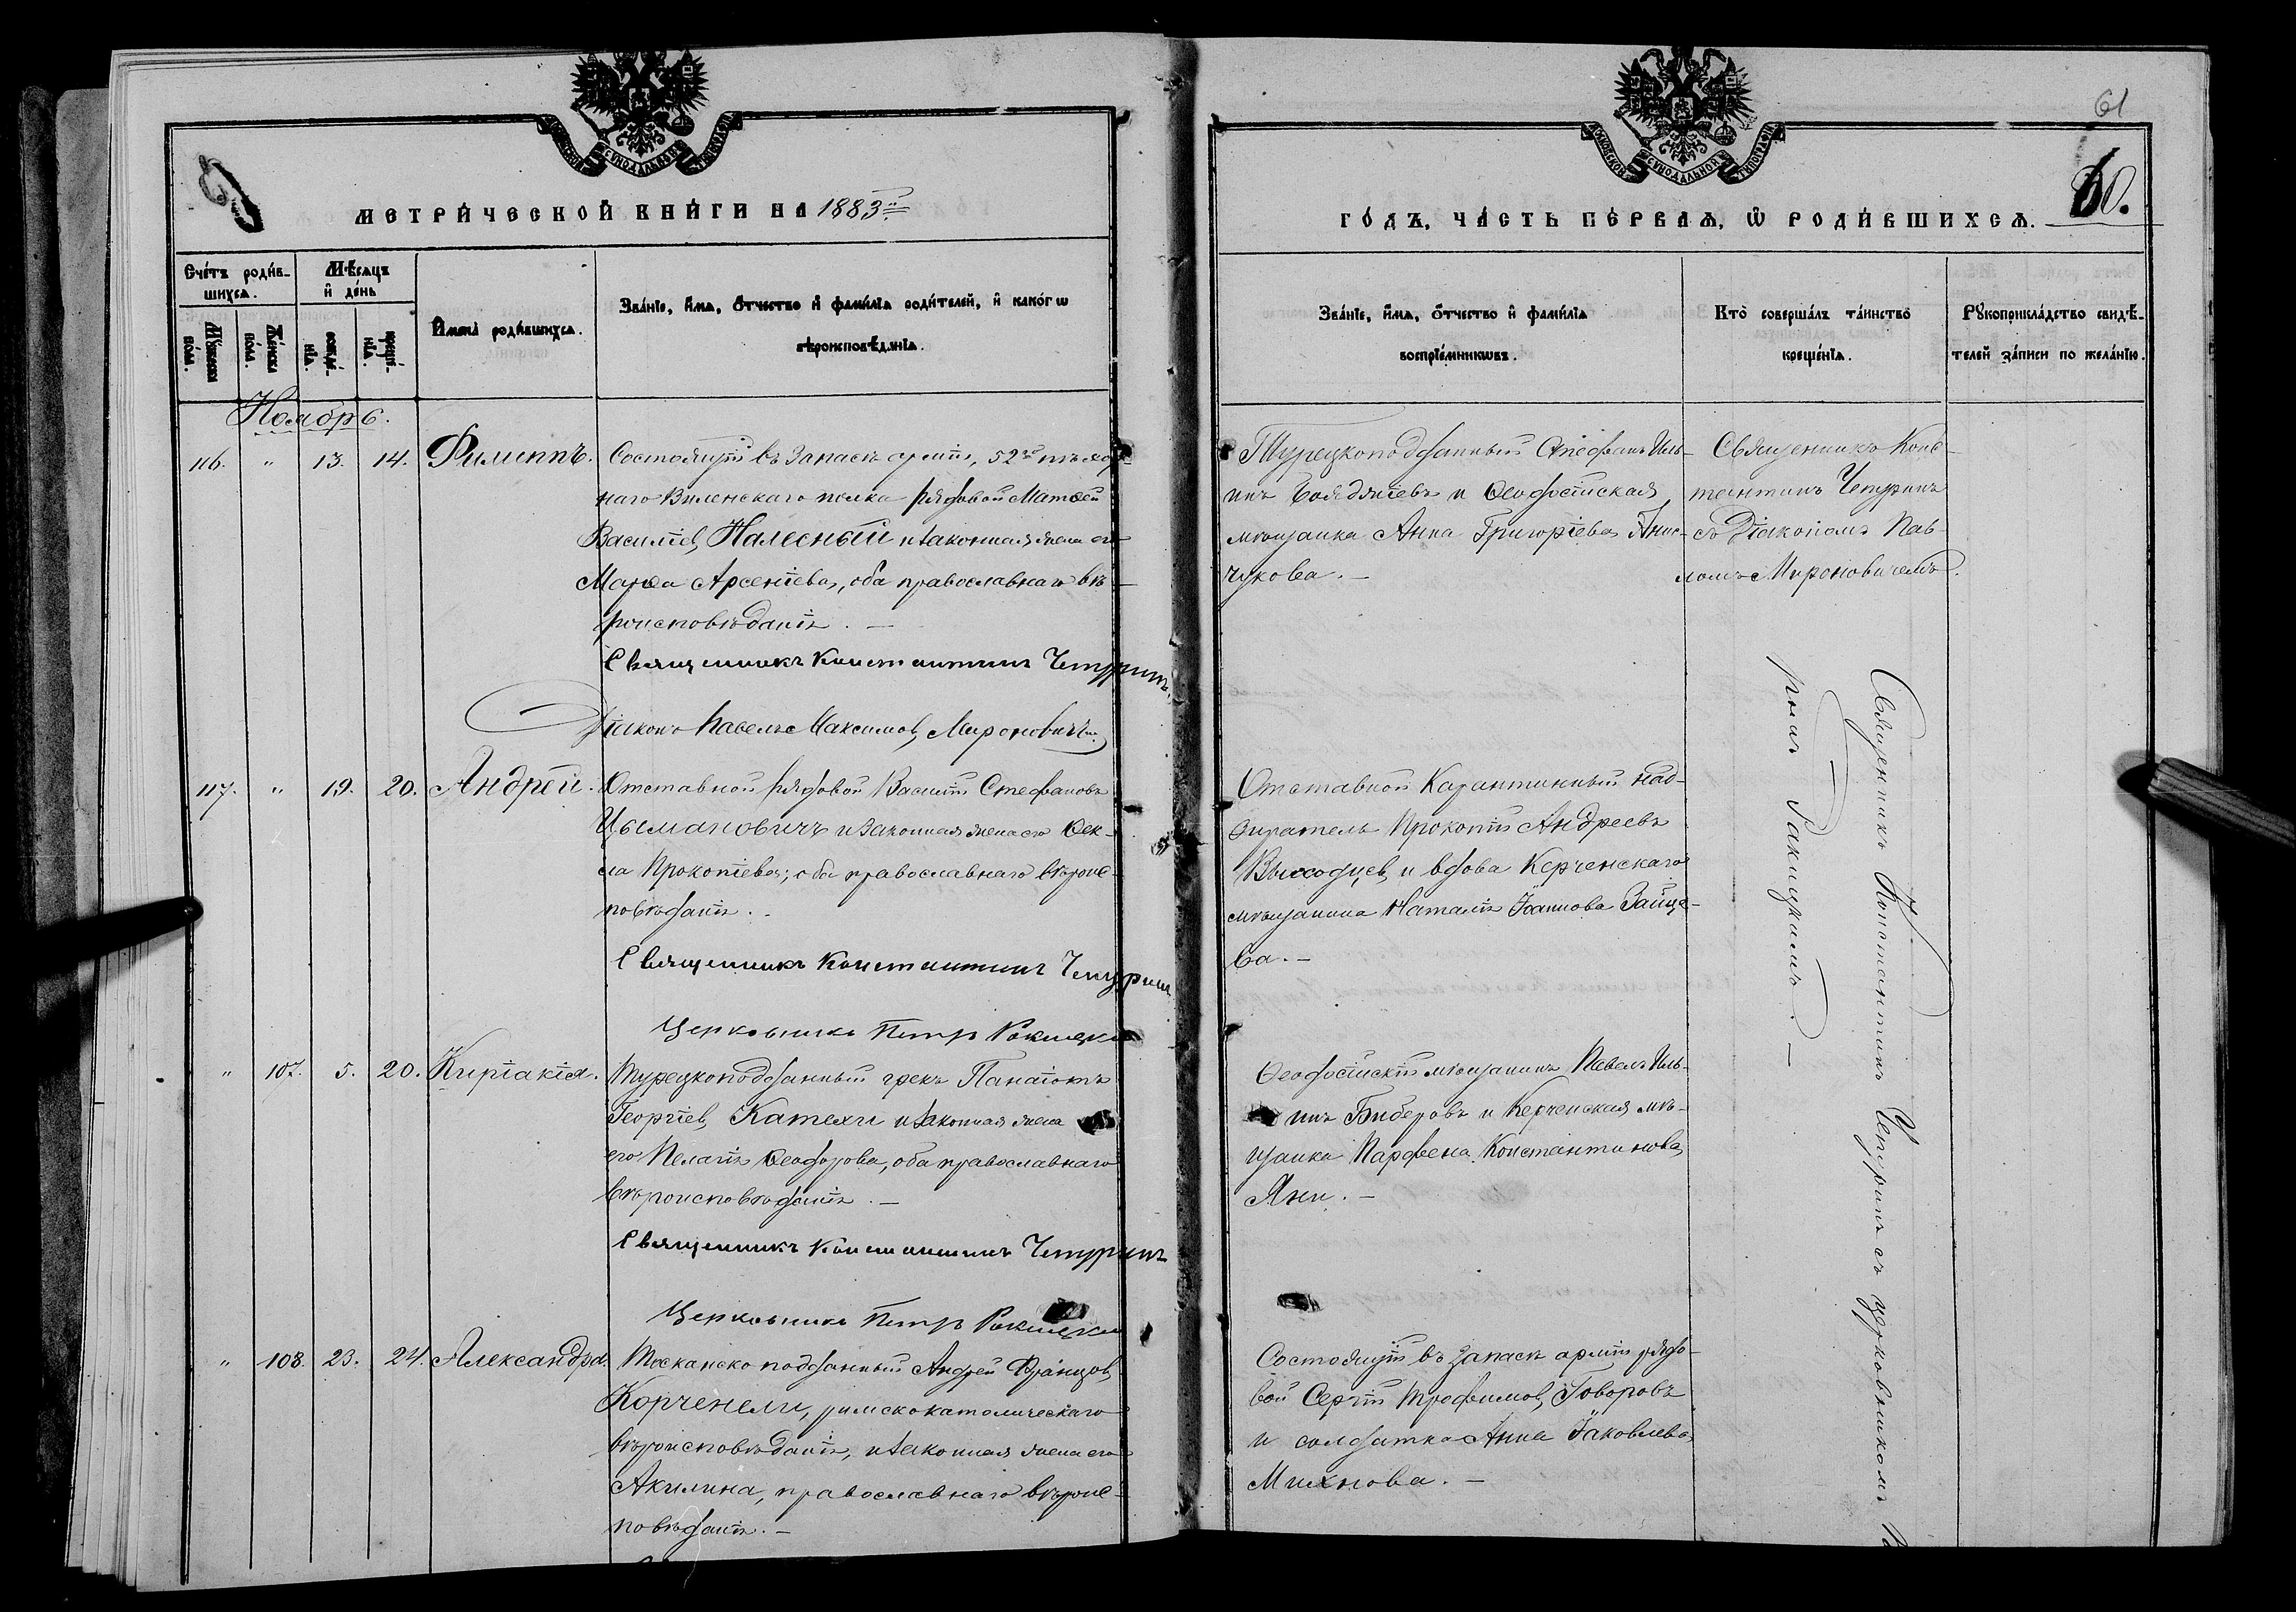 МЕТРИЧЕСКОЙ КНИГИ НА 1883й
Счетъ родившихся.
Мѣсяцъ и день
Имена родившихся.
Званіе, имя, отчество и фамилія родителей, и какогѡ
вѣроисповѣданія.
Мужеска пола.
Женска пола.
рожденія.
крещенія.
Ноябрь.
116. " 13. 14. Филиппъ.
Состоящій въ Запасѣ арміи, 52го пѣхот-
наго Виленскаго полка рядовой Матѳей
Василіев, Налесный и законная жена его
Марѳа Арсеніева, оба православнаго вѣ-
роисповѣданія. —
Священникъ Константинъ Чепуринъ.
Діаконъ Павелъ Максимов, Мироновичъ
117. " 19. 20. Андрей.
Отставной рядовой Василій Стефановъ
Цымановичъ и Законная жена его Ѳек-
ла Прокопіева, оба православнаго вѣроис-
повѣданія.
Священникъ Константинъ Чепуринъ
Церковникъ Петръ Ракицкій
" 107. 5. 20. Киріакія.
Турецкоподданный грекъ Панаіотъ
Георгіев, Катехи и законная жена
его Пелагія Ѳеодорова, оба православнаго
вѣроисповѣданія. —
Священникъ Константинъ Чепуринъ
Церковникъ Петръ Ракицкій
" 108. 23. 24. Александра.
Тосканско подданный Андрей Францов,
Корченели, римскокатолическаго
вѣроисповѣданія, и законная жена его
Акилина, православнаго вѣроис-
повѣданія. —
61
60.
ГОДЪ, ЧАСТЬ ПЕРВАЯ, Ѡ РОДИВШИХСЯ.
Званіе, имя, отчество и фамилія
воспріемникѡвъ.
Кто совершалъ таинство
крещенія.
Рукоприкладство свидѣ-
телей записи по желанію.
Турецкоподданный Стефанъ Иль-
инъ и Ѳеодосійская
мѣщанка Анна Григоріева Анис-
чукова. —
Священникъ Конс-
тантинъ Чепуринъ
съ Діакономъ Пав-
ломъ Мироновичемъ.
Отставной Карантинный над-
зиратель Прокопій Андреевъ
Выходцев, и вдова Керченскаго
мѣщанина Наталія Іоаннова Зайце-
ва. —
Ѳеодосійскій мѣщанинъ Павелъ Иль-
инъ Биберовъ и Керченская мѣ-
щанка Парфена Константинова,
Яни. —
Состоящій въ запасѣ арміи рядо-
вой Сергій Трофимов, Говоровъ
и солдатка Анна Іаковлева
Михнова. —
Священникъ Константинъ Чепуринъ съ церковникомъ
Ракицкимъ. —